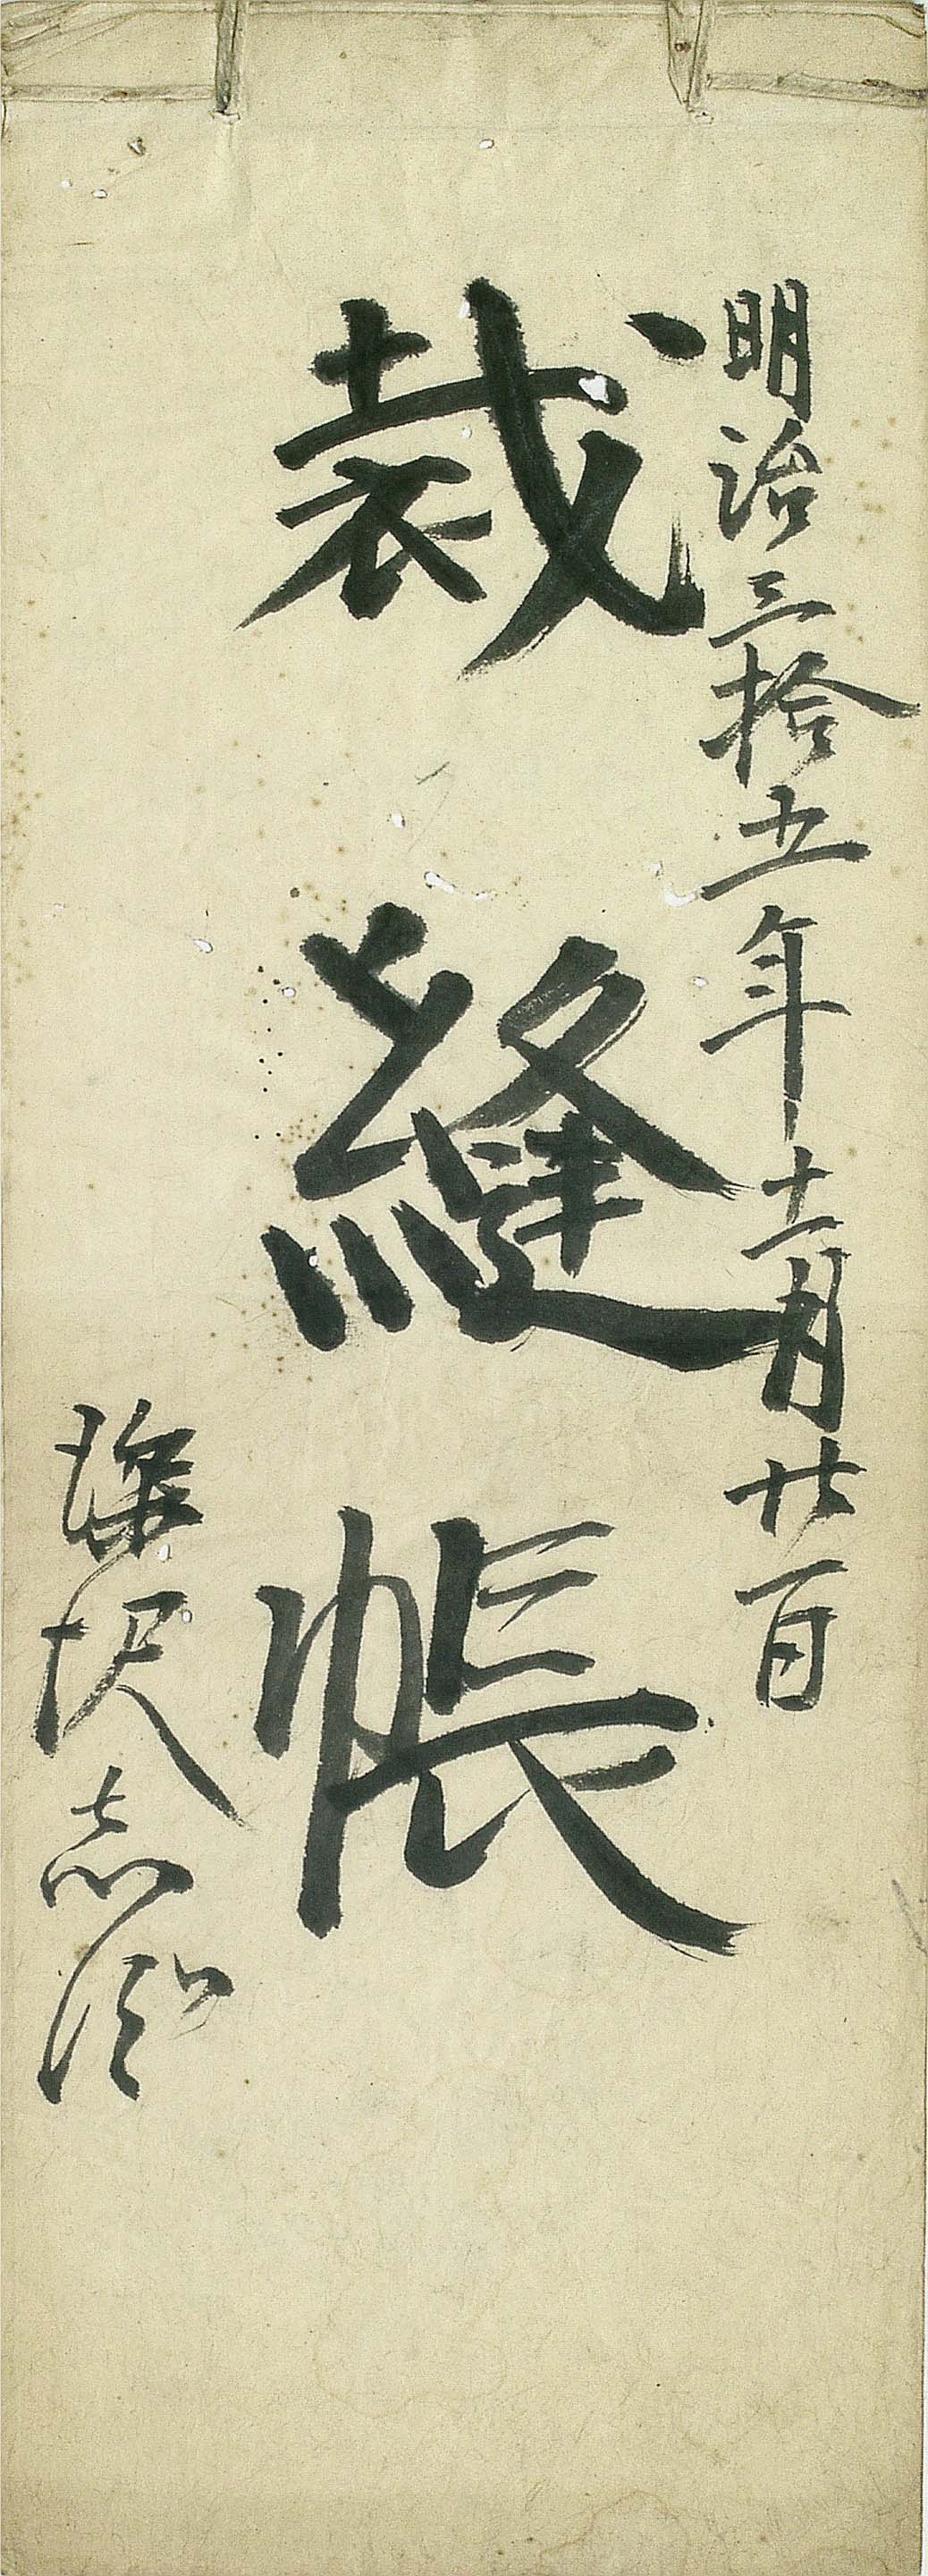 明治三拾五年十一月廿一日
裁縫帳
深沢志